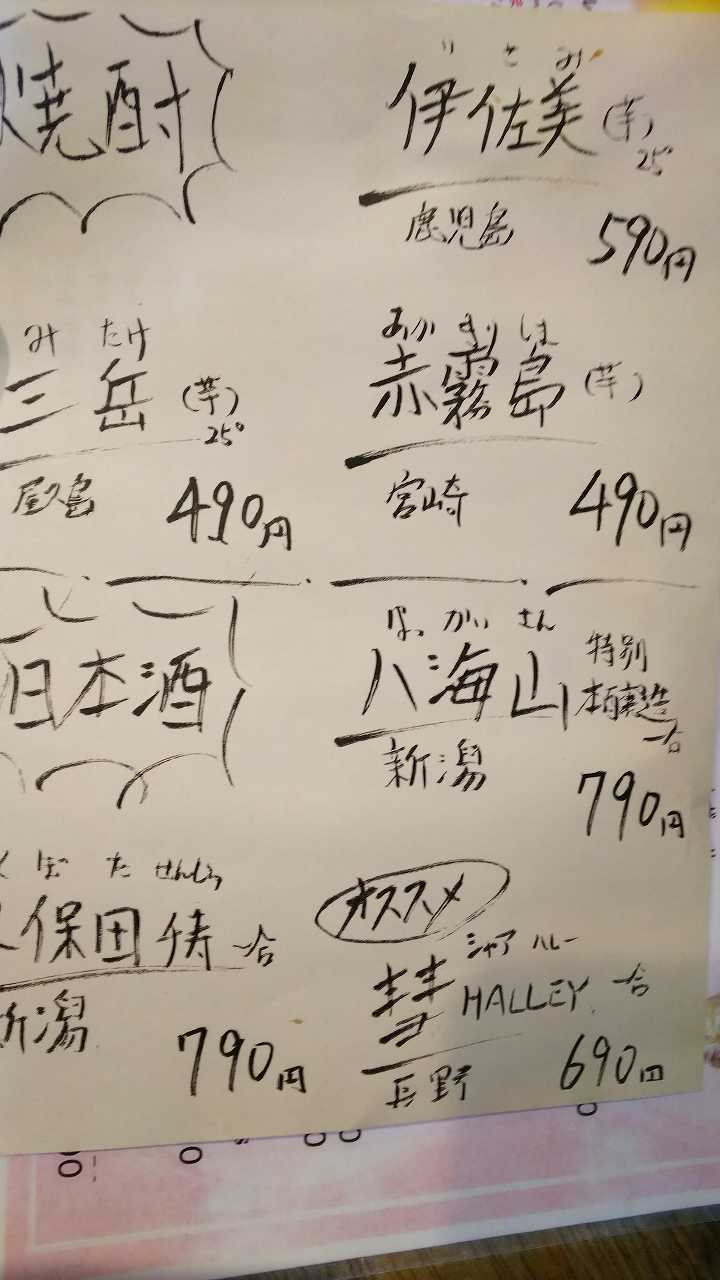 焼酎
いさみ
伊佐美(芋)
25°
鹿児島
590円
みたけ
三岳(芋)
25°
屋久島
490円
あかきりしま
赤霧島(芋)
宮崎
490円
日本酒
はっかいさん
八海山 特別
本醸造
一合
新潟
790円
くぼたせんじゅ
久保田 千寿 一合
新潟
790円
オススメ
シャア ハレー
彗 HALLEY 一合
長野
690円